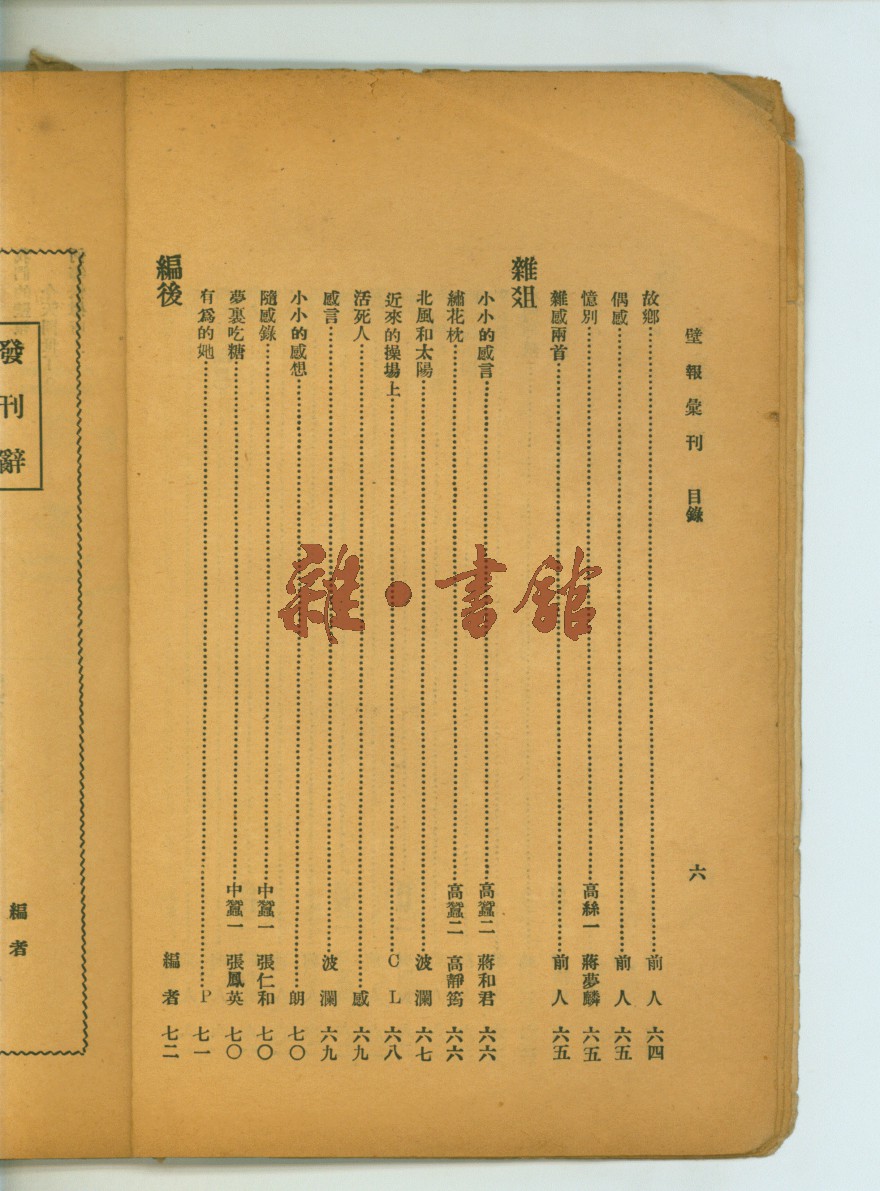 壁報彙刊 目錄 六
故鄉 前人 六四
偶感 前人 六五
憶別 高絲一 蔣夢麟 六五
雜感兩首 前人 六五
雜俎
小小的感言 高蠶二 蔣和君 六六
繡花枕 高蠶二 高靜筠 六六
北風和太陽 波瀾 六七
近來的操場上 CL 六八
活死人 感 六九
感言 波瀾 六九
小小的感想 朗 七〇
隨感錄 中蠶一 張仁和 七〇
夢裏吃糖 中蠶一 張鳳英 七〇
有爲的她 P 七一
編後 編者 七二
發刊辭
編者
雜·書館